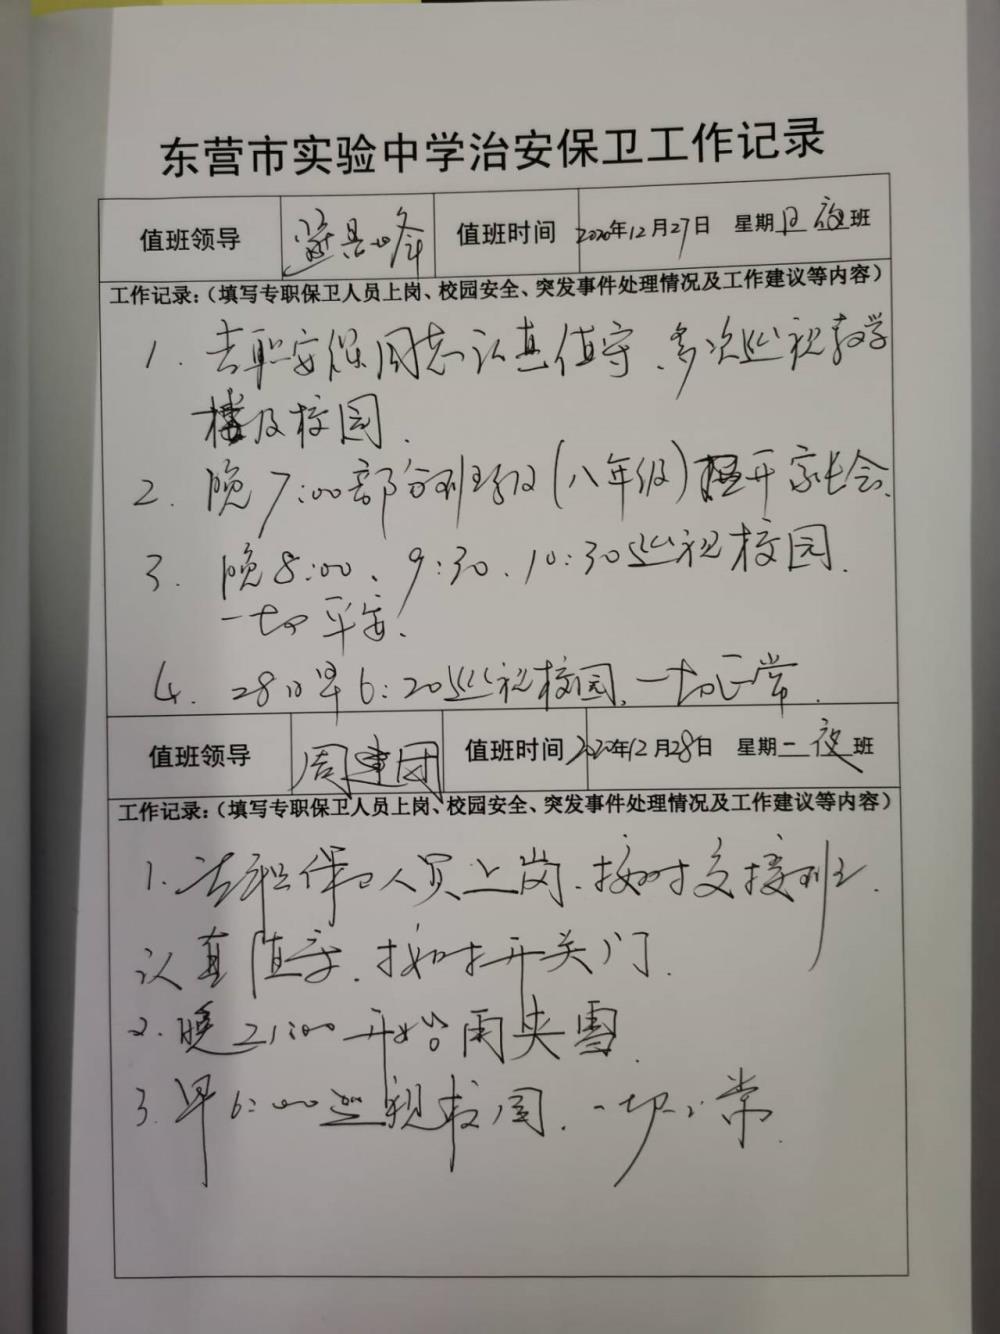 东营市实验中学治安保卫工作记录
值班领导 值班时间 2020年12月27日 星期日 夜班
工作记录:(填写专职保卫人员上岗、校园安全、突发事件处理情况及工作建议等内容)
1. 专职安保同志认真值守、多次巡视教学
楼及校园.
2. 晚7:00部分班级(八年级)开家长会.
3. 晚8:00、9:30、10:30巡视校园.
一切平安.
4. 28日早6:20巡视校园,一切正常.
值班领导 周建国 值班时间 2020年12月28日 星期一 夜班
工作记录:(填写专职保卫人员上岗、校园安全、突发事件处理情况及工作建议等内容)
1. 专职保卫人员上岗、按时交接班.
认真值守.按时开关门.
2. 晚21:00开始雨夹雪.
3. 早6:00巡视校园.一切正常.